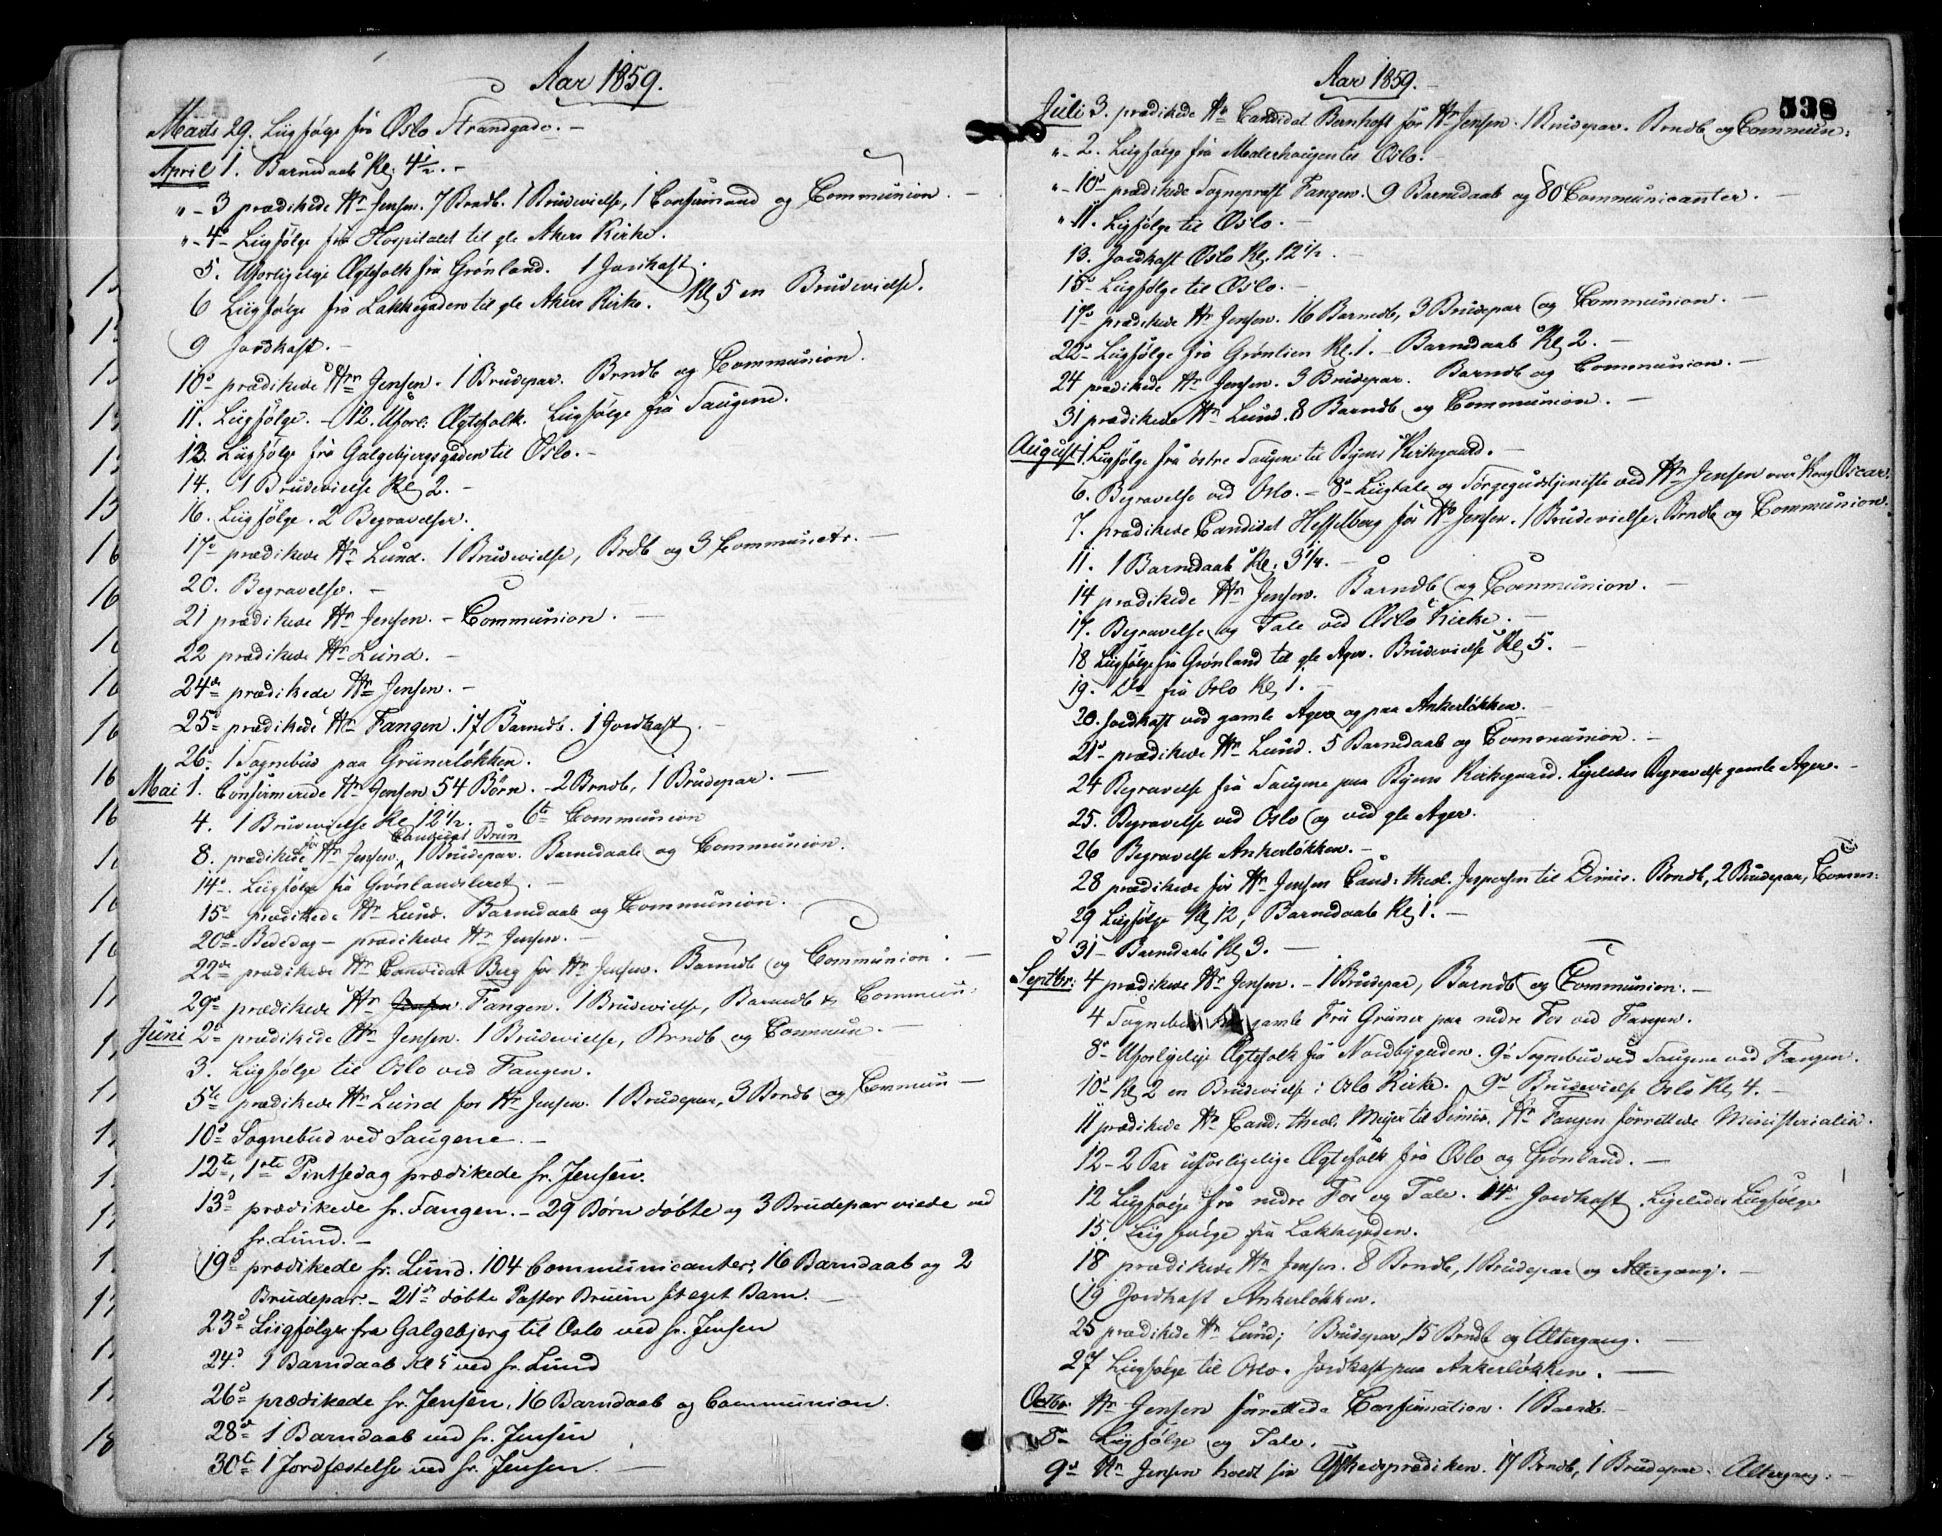 Aar 1859.
Marts 29. Liigfølge frå Oslo Strandgade. -
April 1. Barnedaab Kl. 4½. -
" - 3 prædikede Hr Jensen. 7 Brndb. 1 Brudevielse, 1 Confirmand og Communion. -
" - 4de Liigfølge frå Hospitalet til gle Akers Kirke.
5. Uforligelige Ægtefolk frå Grønland. 1 Jordkast.
6 Liigfølge frå Lakkegaden til gle Akers Kirke. Kl 5 en Brudevielse.
9 Jordkast. -
10de prædikede Hr Jensen. 1 Brudepar. Brndb og Communion.
11. Liigfølge. - 12. Uforl: Ægtefolk. Liigfølge frå Saugene.
13. Liigfølge frå Galgebjergsgaden til Oslo. -
14. 1 Brudevielse Kl 2. -
16. Liigfølge. 2 Begravelser.
17de prædikede Hr Lund. 1 Brudevielse, Brdb og 3 Communctr. -
20. Begravelse. -
21 prædikede Hr Jensen. - Communion. -
22 prædikede Hr Lund. -
24de prædikede Hr Jensen. -
25de prædikede Hr Fangen. 17 Barnedb. 1 Jordkast. -
26de 1 Sognebud paa Grünerløkken.
Mai 1. Confirmerede Hr Jensen 54 Børn. - 2 Brndb, 1 Brudepar. -
4. 1 Brudevielse Kl 12½. 6te Communion
Candidat Brun
8. prædikede for Hr Jensen, 1 Brudepar. Barnedaab og Communion.
14de Liigfølge frå Grønlandsleret. -
15de prædikede Hr Lund. Barnedaab og Communion.
20de Bededag - prædikede Hr Jensen. -
22de prædikede Hr Candidat Berg for Hr Jensen. Barnedb og Communion. -
29de prædikede Hr Jensen Fangen. 1 Brudevielse, Barnedb & Commun:
Juni 2den prædikede Hr Jensen. 1 Brudevielse, Brndb og Commun. -
3. Liigfølge til Oslo ved Fangen.
5te prædikede Hr Lund for Hr Jensen. 1 Brudepar, 3 Brndb og Commun -
10de Sognebud ved Saugene. -
12te, 1ste Pintsedag prædikede hr. Jensen.
13de prædikede hr. Fangen. - 29 Børn døbte og 3 Brudepar viede ved
hr. Lund. -
19de prædikede hr. Lund. 104 Communicanter, 16 Barndaab og 2
Brudepar. - 21de døbte Pastor Bruun sit eget Barn. -
23de Liigfølge fra Galgebjerg til Oslo ved hr. Jensen
24de 1 Barndaab Kl 5 ved hr. Lund
26de prædikede hr. Jensen, 16 Barndaab og Communion.
28de 1 Barndaab ved hr. Jensen
30te 1 Jordfæstelse ved hr. Jensen. -
Aar 1859. -
538
Juli 3. prædikede Hr Candidat Bernhoft for Hr Jensen. 1 Brudepar. Brndb og Commun:
" - 2. Liigfølge frå Maderhougen til Oslo. -
" - 10de prædikede Sogneprest Fangen. 9 Barnedaab og 80 Communicanter. -
" 11. Ligfølge til Oslo. -
13. Jordkast Oslo Kl. 12½. -
15de Liigfølge til Oslo. -
17de prædikede Hr Jensen. 16 Barnedb, 3 Brudepar og Communion. -
22de Liigfølge frå Grønlien Kl. 1. - Barnedaab Kl 2. -
24 prædikede Hr Jensen. 3 Brudepar. Barndb og Communion. -
31 prædikede Hr Lund. 8 Barndb og Communion. -
August 1. Liigfølge frå østre Saugene til Byens Kirkegaard. -
6. Begravelse ved Oslo. - 8de Liigtale og Sørgegudstjeneste ved Hr Jensen over Kong Oscar.
7. prædikede Candidat Hesselberg for Hr Jensen. 1 Brudevielse. Brndb og Communion.
11. 1 Barnedaab Kl. 3¼. -
14 prædikede Hr Jensen. Barndb og Communion. -
17. Begravelse og Tale ved Oslo Kirke. -
18 Liigfølge frå Grønland til gle Ager. Brudevielse Kl 5. -
19. Do frå Oslo Kl 1. -
20. Jordkast ved gamle Ager og paa Ankerløkken. -
21de prædikede Hr Lund. 5 Barnedaab og Communion. -
24 Begravelse frå Saugene paa Byens Kirkegaard. Ligeledes Begravelse gamle Ager. -
25. Begravelse ved Oslo og ved gle Ager.
26 Begravelse Ankerløkken. -
28 prædikede for Hr Jensen Cand: theol. Jespersen til Dimis. Brndb, 2 Brudepar, Comm:
29 Liigfølge Kl 12, Barnedaab Kl 1. -
31 - Barnedaab Kl 3. -
Septbr: 4 prædikede Hr Jensen. - 1 Brudepar, Barndb og Communion. -
4 Sognebud gamle Fru Grüner paa nedre Fos ved Fangen.
8de Uforligelige Ægtefolk frå Nordbygaden. 9de Sognebud ved Saugene ved Fangen.
10de Kl 2 en Brudevielse i Oslo Kirke. 9de Brudevielse Oslo Kl 4. -
11 prædikede Hr Cand: theol. Meijer til Dimis. Hr Fangen forrettede Ministerialia.
12 - 2 Par uforligelige Ægtefolk frå Oslo og Grønland. -
12 Liigfølge frå nedre Fos og Tale. 14de Jordkast. Ligeledes Liigfølge
15. Liigfølge frå Lakkegaden.
18 prædikede Hr Jensen. 8 Brndb, 1 Brudepar og Altergang. -
19 Jordkast Ankerløkken.
25 prædikede Hr Lund; 1 Brudepar, 15 Brndb og Altergang. -
27 Liigfølge til Oslo. Jordkast paa Ankerløkken. -
Octbr. Hr Jensen forrettede Confirmation. 1 Barndb. -
5te Liigfølge og Tale.
9de Hr Jensen holdt sin Afskedsprædiken. 17 Brndb, 1 Brudepar. Altergang. -